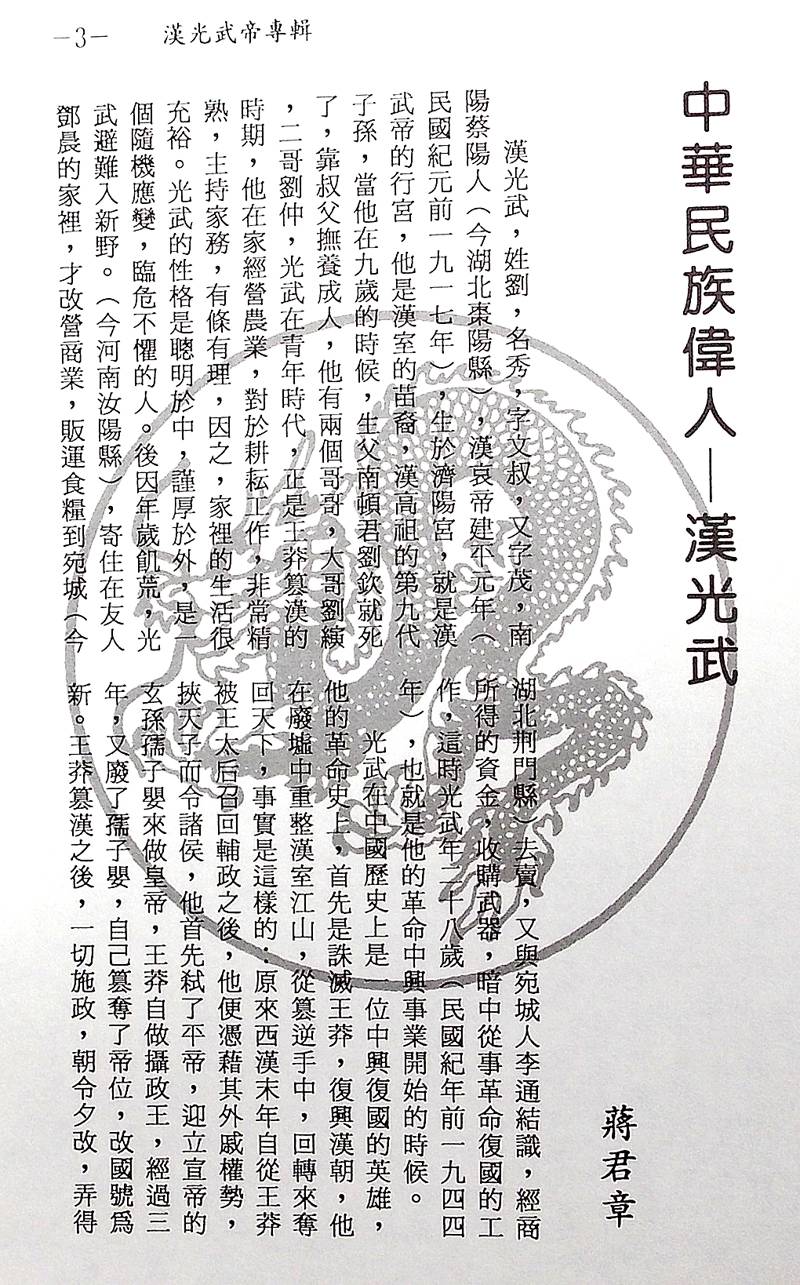 —3— 漢光武帝專輯
中華民族偉人—漢光武
蔣君章
漢光武，姓劉，名秀，字文叔，又字茂，南
陽蔡陽人（今湖北棗陽縣），漢哀帝建平元年（
民國紀元前一九一七年），生於濟陽宮，就是漢
武帝的行宮，他是漢室的苗裔，漢高祖的第九代
子孫，當他在九歲的時候，生父南頓君劉欽就死
了，靠叔父撫養成人，他有兩個哥哥，大哥劉縯
，二哥劉仲，光武在青年時代，正是王莽篡漢的
時期，他在家經營農業，對於耕耘工作，非常精
熟，主持家務，有條有理，因之，家裡的生活很
充裕。光武的性格是聰明於中，謹厚於外，是一
個隨機應變，臨危不懼的人。後因年歲飢荒，光
武避難入新野。（今河南汝陽縣），寄住在友人
鄧晨的家裡，才改營商業，販運食糧到宛城（今
湖北荆門縣）去賣，又與宛城人李通結識，經商
所得的資金，收購武器，暗中從事革命復國的工
作，這時光武年二十八歲（民國紀年前一九四四
年），也就是他的革命中興事業開始的時候。
光武在中國歷史上是　位中興復國的英雄，
他的革命史上，首先是誅滅王莽，復興漢朝，他
在廢墟中重整漢室江山，從篡逆手中，回轉來奪
回天下，事實是這樣的：原來西漢末年自從王莽
被王太后召回輔政之後，他便憑藉其外戚權勢，
挾天子而令諸侯，他首先弒了平帝，迎立宣帝的
玄孫孺子嬰來做皇帝，王莽自做攝政王，經過三
年，又廢了孺子嬰，自己篡奪了帝位，改國號爲
新。王莽篡漢之後，一切施政，朝令夕改，弄得